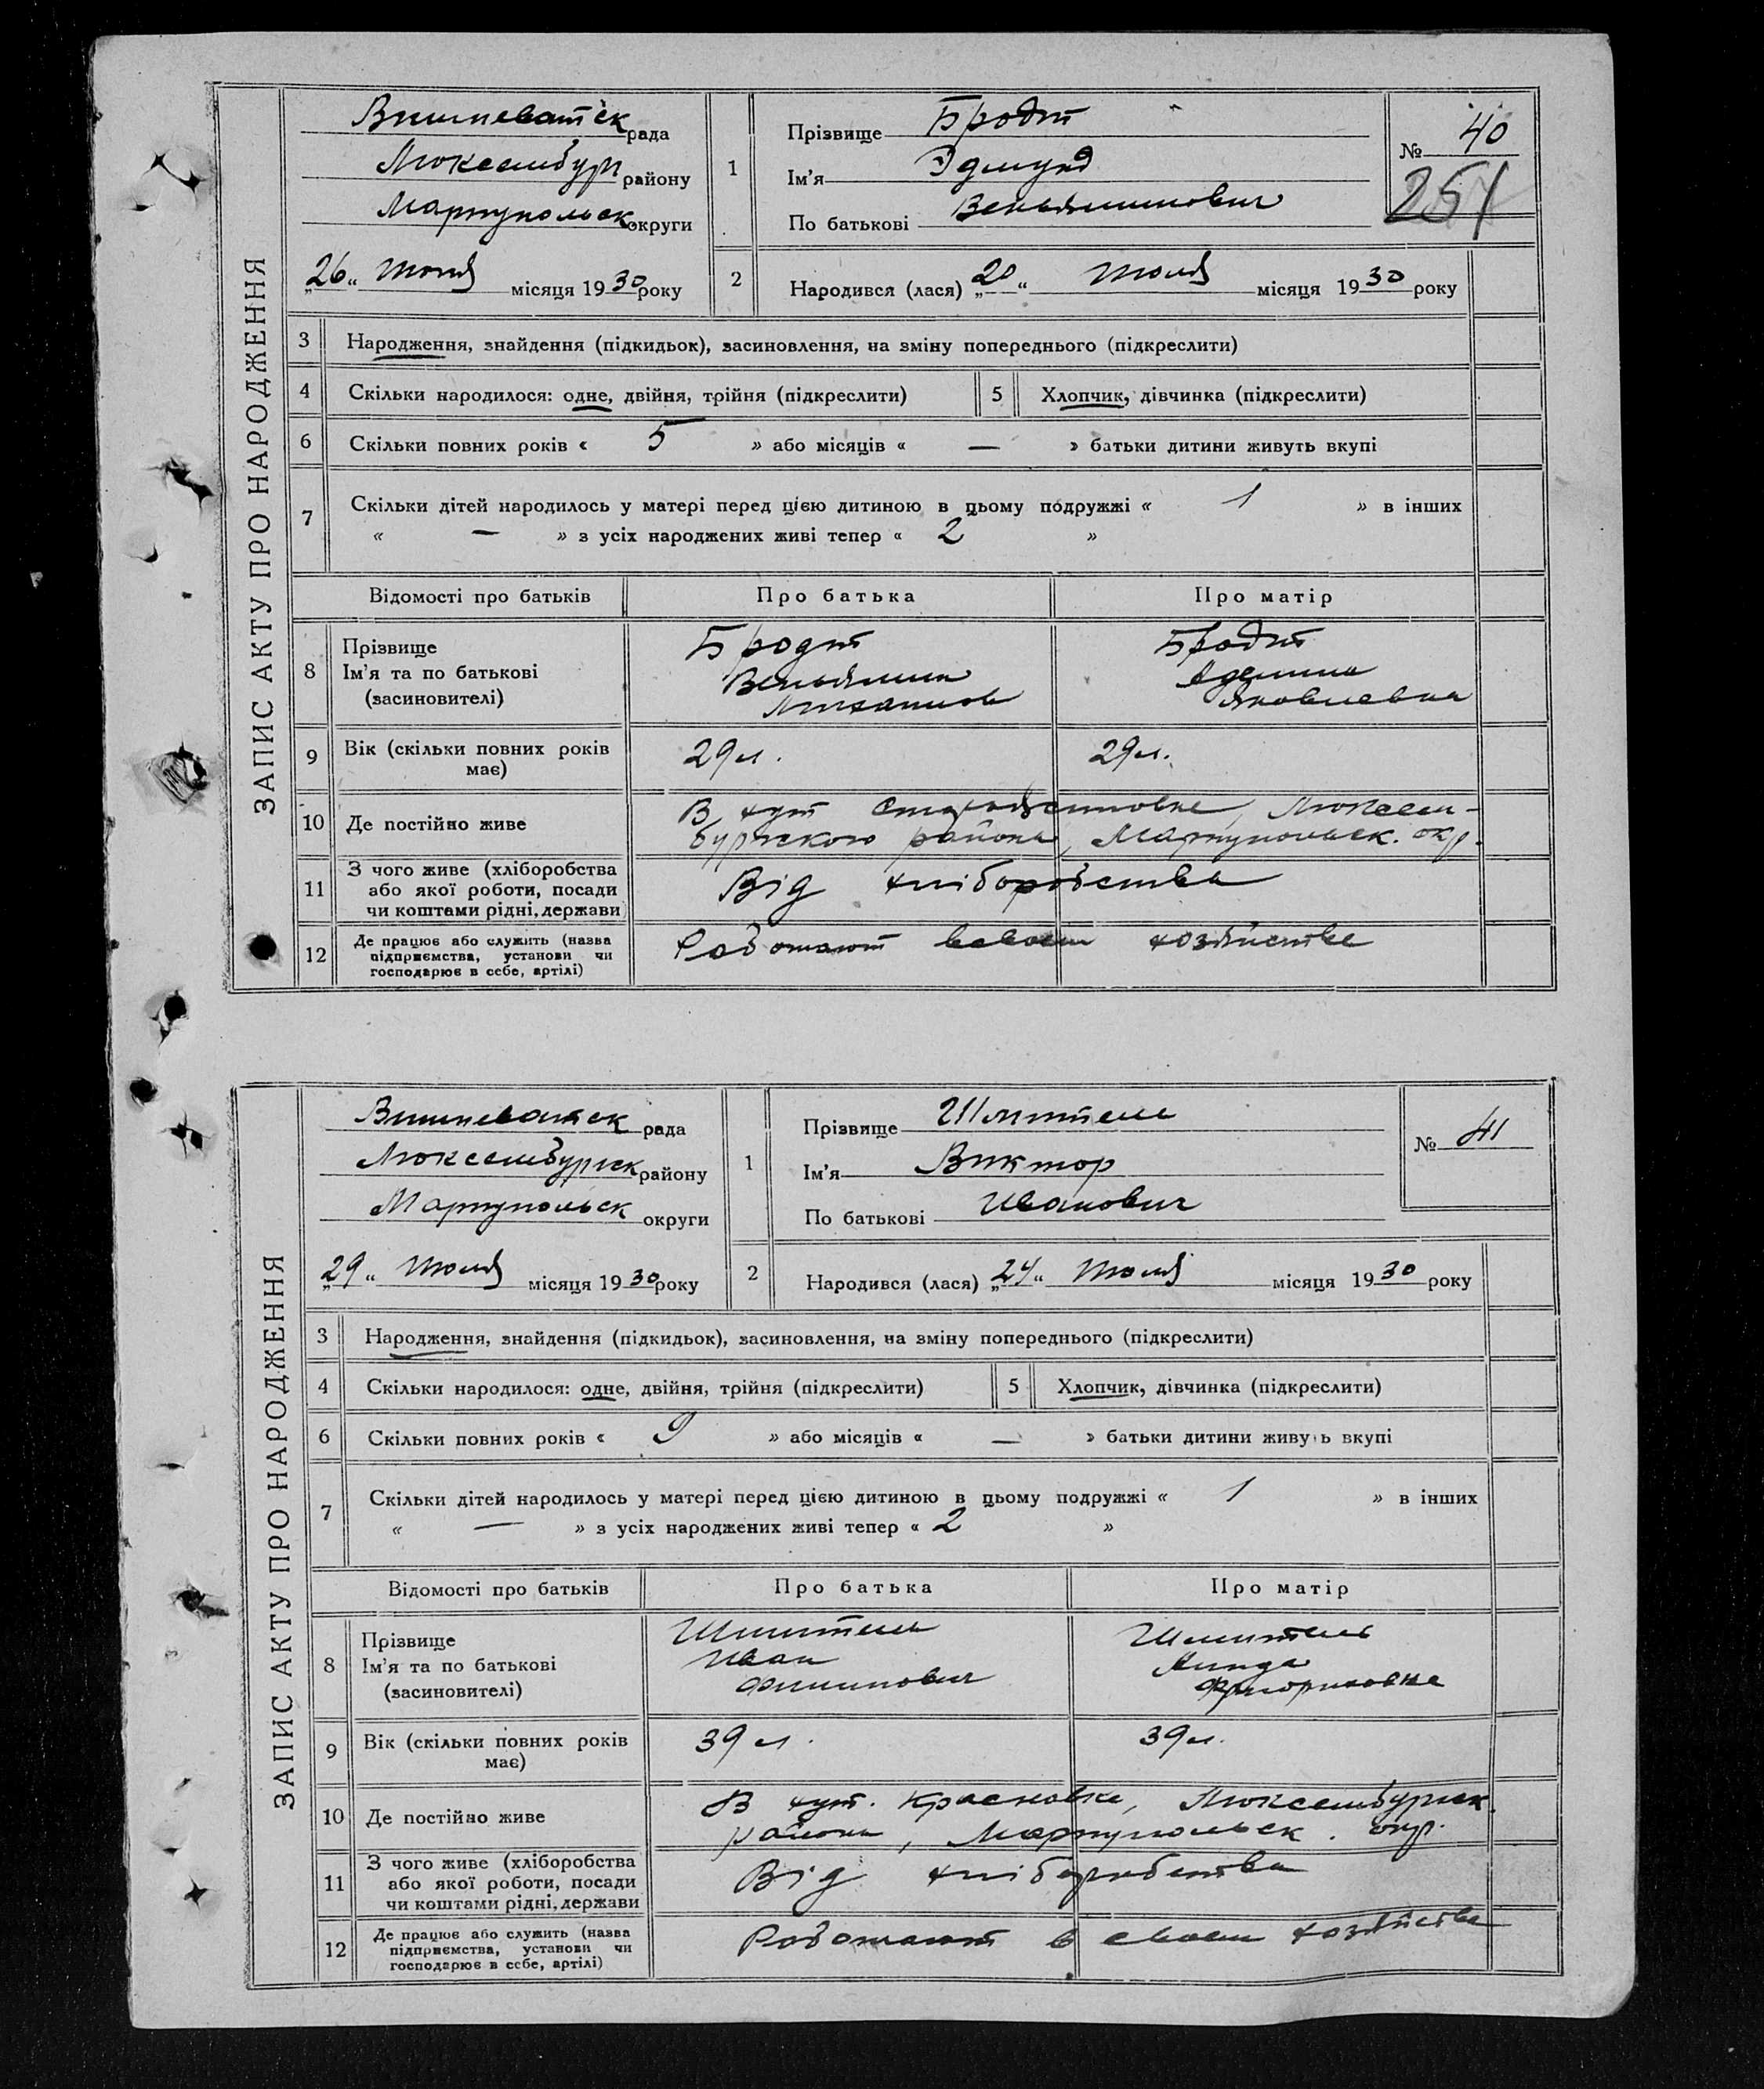 ЗАПИС АКТУ ПРО НАРОДЖЕННЯ
Вишневатск рада
Люксембург району
Мариупольск округи
„26“ Июля місяця 1930 року
1
Прізвище Бродт
Ім'я Эдмунд
По батькові Веньяминович
№ 40
251
2
Народився (лася) „20“ Июля місяця 1930 року
3 Народження, знайдення (підкидьок), засиновлення, на зміну попереднього (підкреслити)
4 Скільки народилося: одне, двійня, трійня (підкреслити) 5 Хлопчик, дівчинка (підкреслити)
6 Скільки повних років « 5 » або місяців « — » батьки дитини живуть вкупі
7 Скільки дітей народилось у матері перед цією дитиною в цьому подружжі « 1 » в інших
« — » з усіх народжених живі тепер « 2 »
Відомості про батьків Про батька Про матір
8 Прізвище
Ім'я та по батькові
(засиновителі)
Бродт
Веньямин
Михайлов
Бродт
Яковлевна
9 Вік (скільки повних років
має)
29 л. 29 л.
10 Де постійно живе
В хут Люксем-
бургского района, Мариупольск. окр.
11 З чого живе (хліборобства
або якої роботи, посади
чи коштами рідні, держави
Від хліборобства
12 Де працює або служить (назва
підприємства, установи чи
господарює в себе, артілі)
Работают в своем хозяйстве
ЗАПИС АКТУ ПРО НАРОДЖЕННЯ
Вишневатск рада
Люксембургск району
Мариупольск округи
„29“ Июля місяця 1930 року
1
Прізвище
Ім'я Виктор
По батькові Иванович
№ 41
2
Народився (лася) „24“ Июля місяця 1930 року
3 Народження, знайдення (підкидьок), засиновлення, на зміну попереднього (підкреслити)
4 Скільки народилося: одне, двійня, трійня (підкреслити) 5 Хлопчик, дівчинка (підкреслити)
6 Скільки повних років « 9 » або місяців « — » батьки дитини живуть вкупі
7 Скільки дітей народилось у матері перед цією дитиною в цьому подружжі « 1 » в інших
« — » з усіх народжених живі тепер « 2 »
Відомості про батьків Про батька Про матір
8 Прізвище
Ім'я та по батькові
(засиновителі)
Иван
Филипович
Линда
9 Вік (скільки повних років
має)
39 л. 39 л.
10 Де постійно живе
В хут. Красновке, Люксембургск.
района, Мариупольск. окр.
11 З чого живе (хліборобства
або якої роботи, посади
чи коштами рідні, держави
Від хліборобства
12 Де працює або служить (назва
підприємства, установи чи
господарює в себе, артілі)
Работают в своем хозяйстве